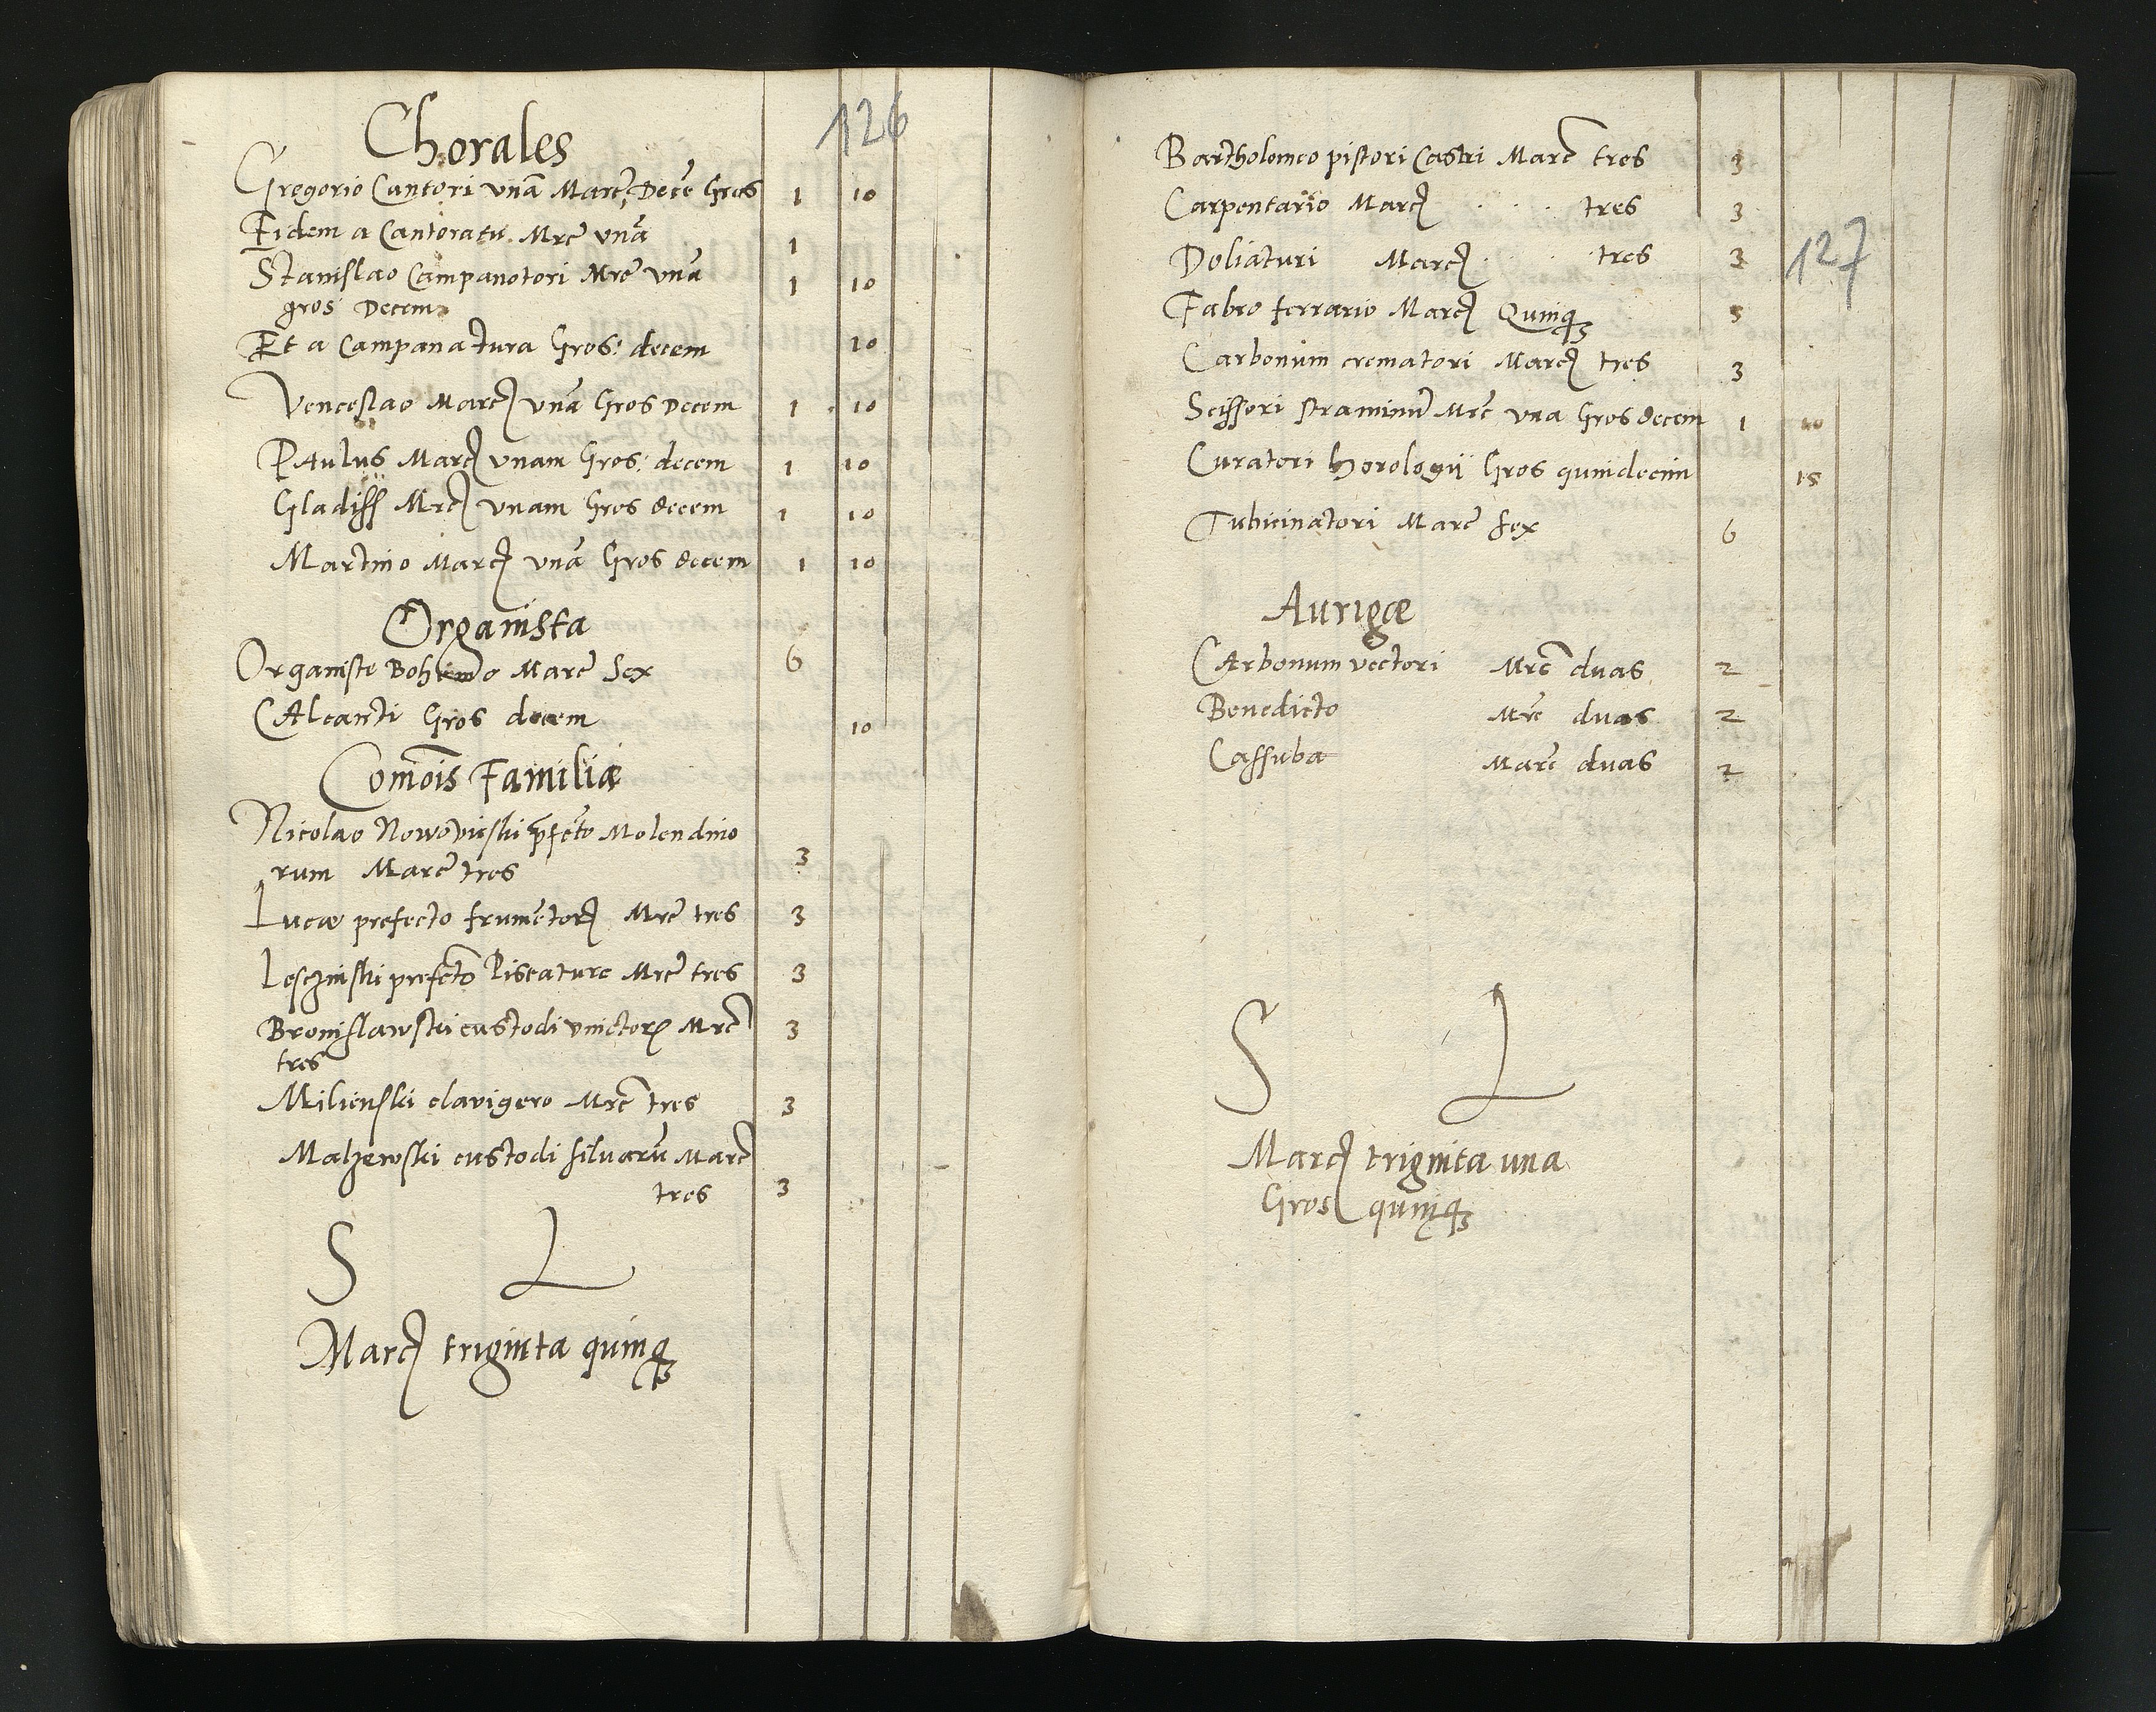 126
Chorales
Gregorio Cantori vnã Marc̃ Decẽ Gros 1 10
Eidem a Cantoratu Mrc̃ vnã 1
Stanislao Campanotori Mrc̃ vnã 1 10
gros Decem
Et a Campanatura Gros: decem 10
Venceslao Marcꝭ vnã Gros Decem 1 10
PAulus Marcꝭ vnam Gros: decem 1 10
Gladiss Mrcꝭ vnam Gros decem 1 10
Martino Marcꝭ vnã Gros decem 1 10
Organista
Organiste Bohemo Marc̃ Sex 6
CAlcanti Gros decem 10
Com̃ois Familiæ
Nicolao Nowowieski p̃fec̃to Molendino
rum Marc̃ tres 3
Lucæ prefecto frumẽtorꝭ Mrc̃ tres 3
Lesczinski prefec̃to Piscature Mrc̃ tres 3
Bronislawski custodi vinctorꝭ Mrc̃ 3
tres
Milienski clavigero Mrc̃ tres 3
Malzewski custodi siluarũ Marc̃
tres 3
S L
Marcꝭ triginta quinqꝫ
127
Bartholomeo pistori Castri Marc̃ tres 3
Carpentario Marcꝭ . . . tres 3
Doliaturi Marcꝭ . . tres 3
Fabro ferrario Marcꝭ Quinqꝫ 5
Carbonum crematori Marcꝭ tres 3
Scissori straminũ Mrc̃ vna Gros decem 1 10
Curatori horologii Gros quindecim 15
Tubicinatori Marc̃ sex 6
Aurigæ
CArbonum vectori Mrc̃ duas 2
Benedicto Mrc̃ duas 2
Cassuba Marc̃ duas 2
S L
Marcꝭ triginta una
Gros quinqꝫ